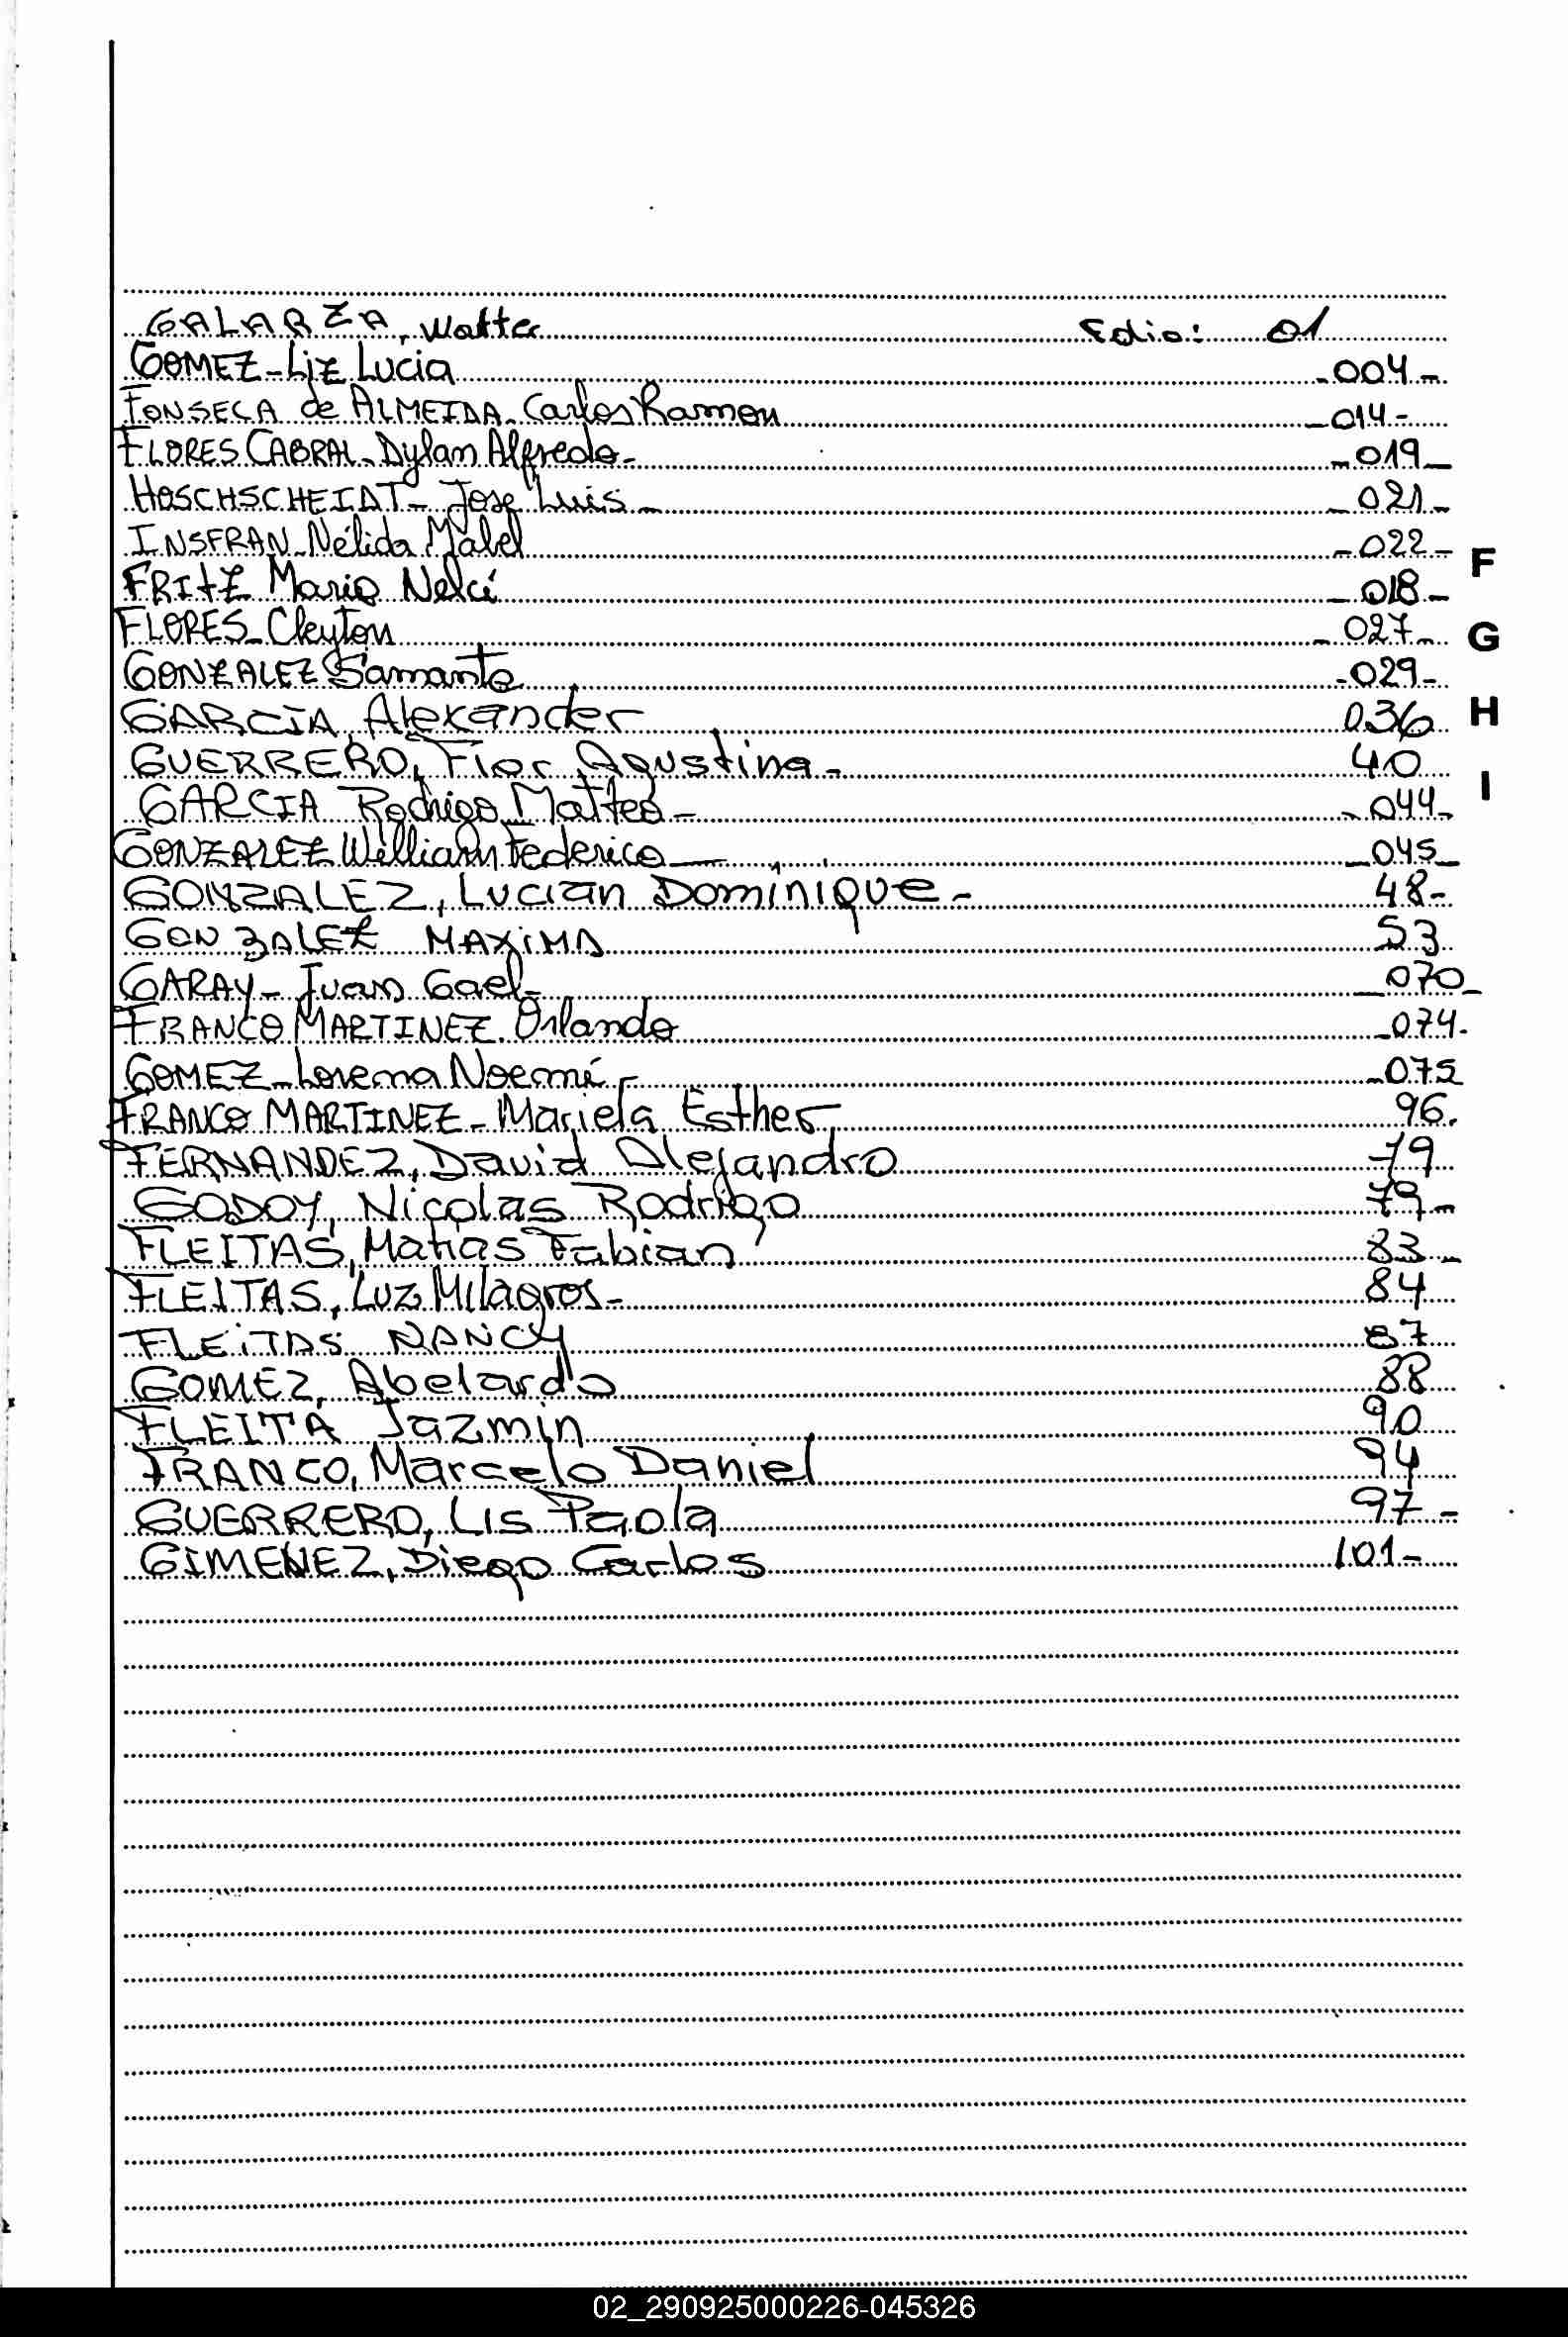 GALARZA, Walter Folio: 01
GOMEZ - Liz Lucia - 004 -
FONSECA de ALMEIDA - Carlos Ramon - 014 -
FLORES CABRAL - Dylan Alfredo - - 019 -
HOSCHSCHEIDT - Jose Luis - - 021 -
INSFRAN - Nélida Mabel - 022 -
FRITZ Mario Nelcí - 018 -
FLORES - Cleyton - 027 -
GONZALEZ Samanta - 029 -
GARCÍA, Alexander 036
GUERRERO, Flor Agustina - 40
GARCIA Rodrigo Matteo - - 044 -
GONZALEZ William Federico - 045 -
GONZALEZ, Lucian Dominique - 48 -
GONZALEZ MAXIMA 53
GARAY - Juan Gael - - 070 -
FRANCO MARTINEZ. Orlando - 074 -
GOMEZ - Lorena Noemí - - 075
FRANCO MARTINEZ - Mariela Esther 96.
FERNANDEZ, David Alejandro 79
GODOY, Nicolas Rodrigo 79 -
FLEITAS, Matias Fabian 83 -
FLEITAS, Luz Milagros - 84
FLEITAS NANCY 87
GOMEZ, Abelardo 88
FLEITA Jazmin 90
FRANCO, Marcelo Daniel 94
GUERRERO, Lis Paola 97 -
GIMENEZ, Diego Carlos 101 -
F
G
H
I
02_290925000226-045326